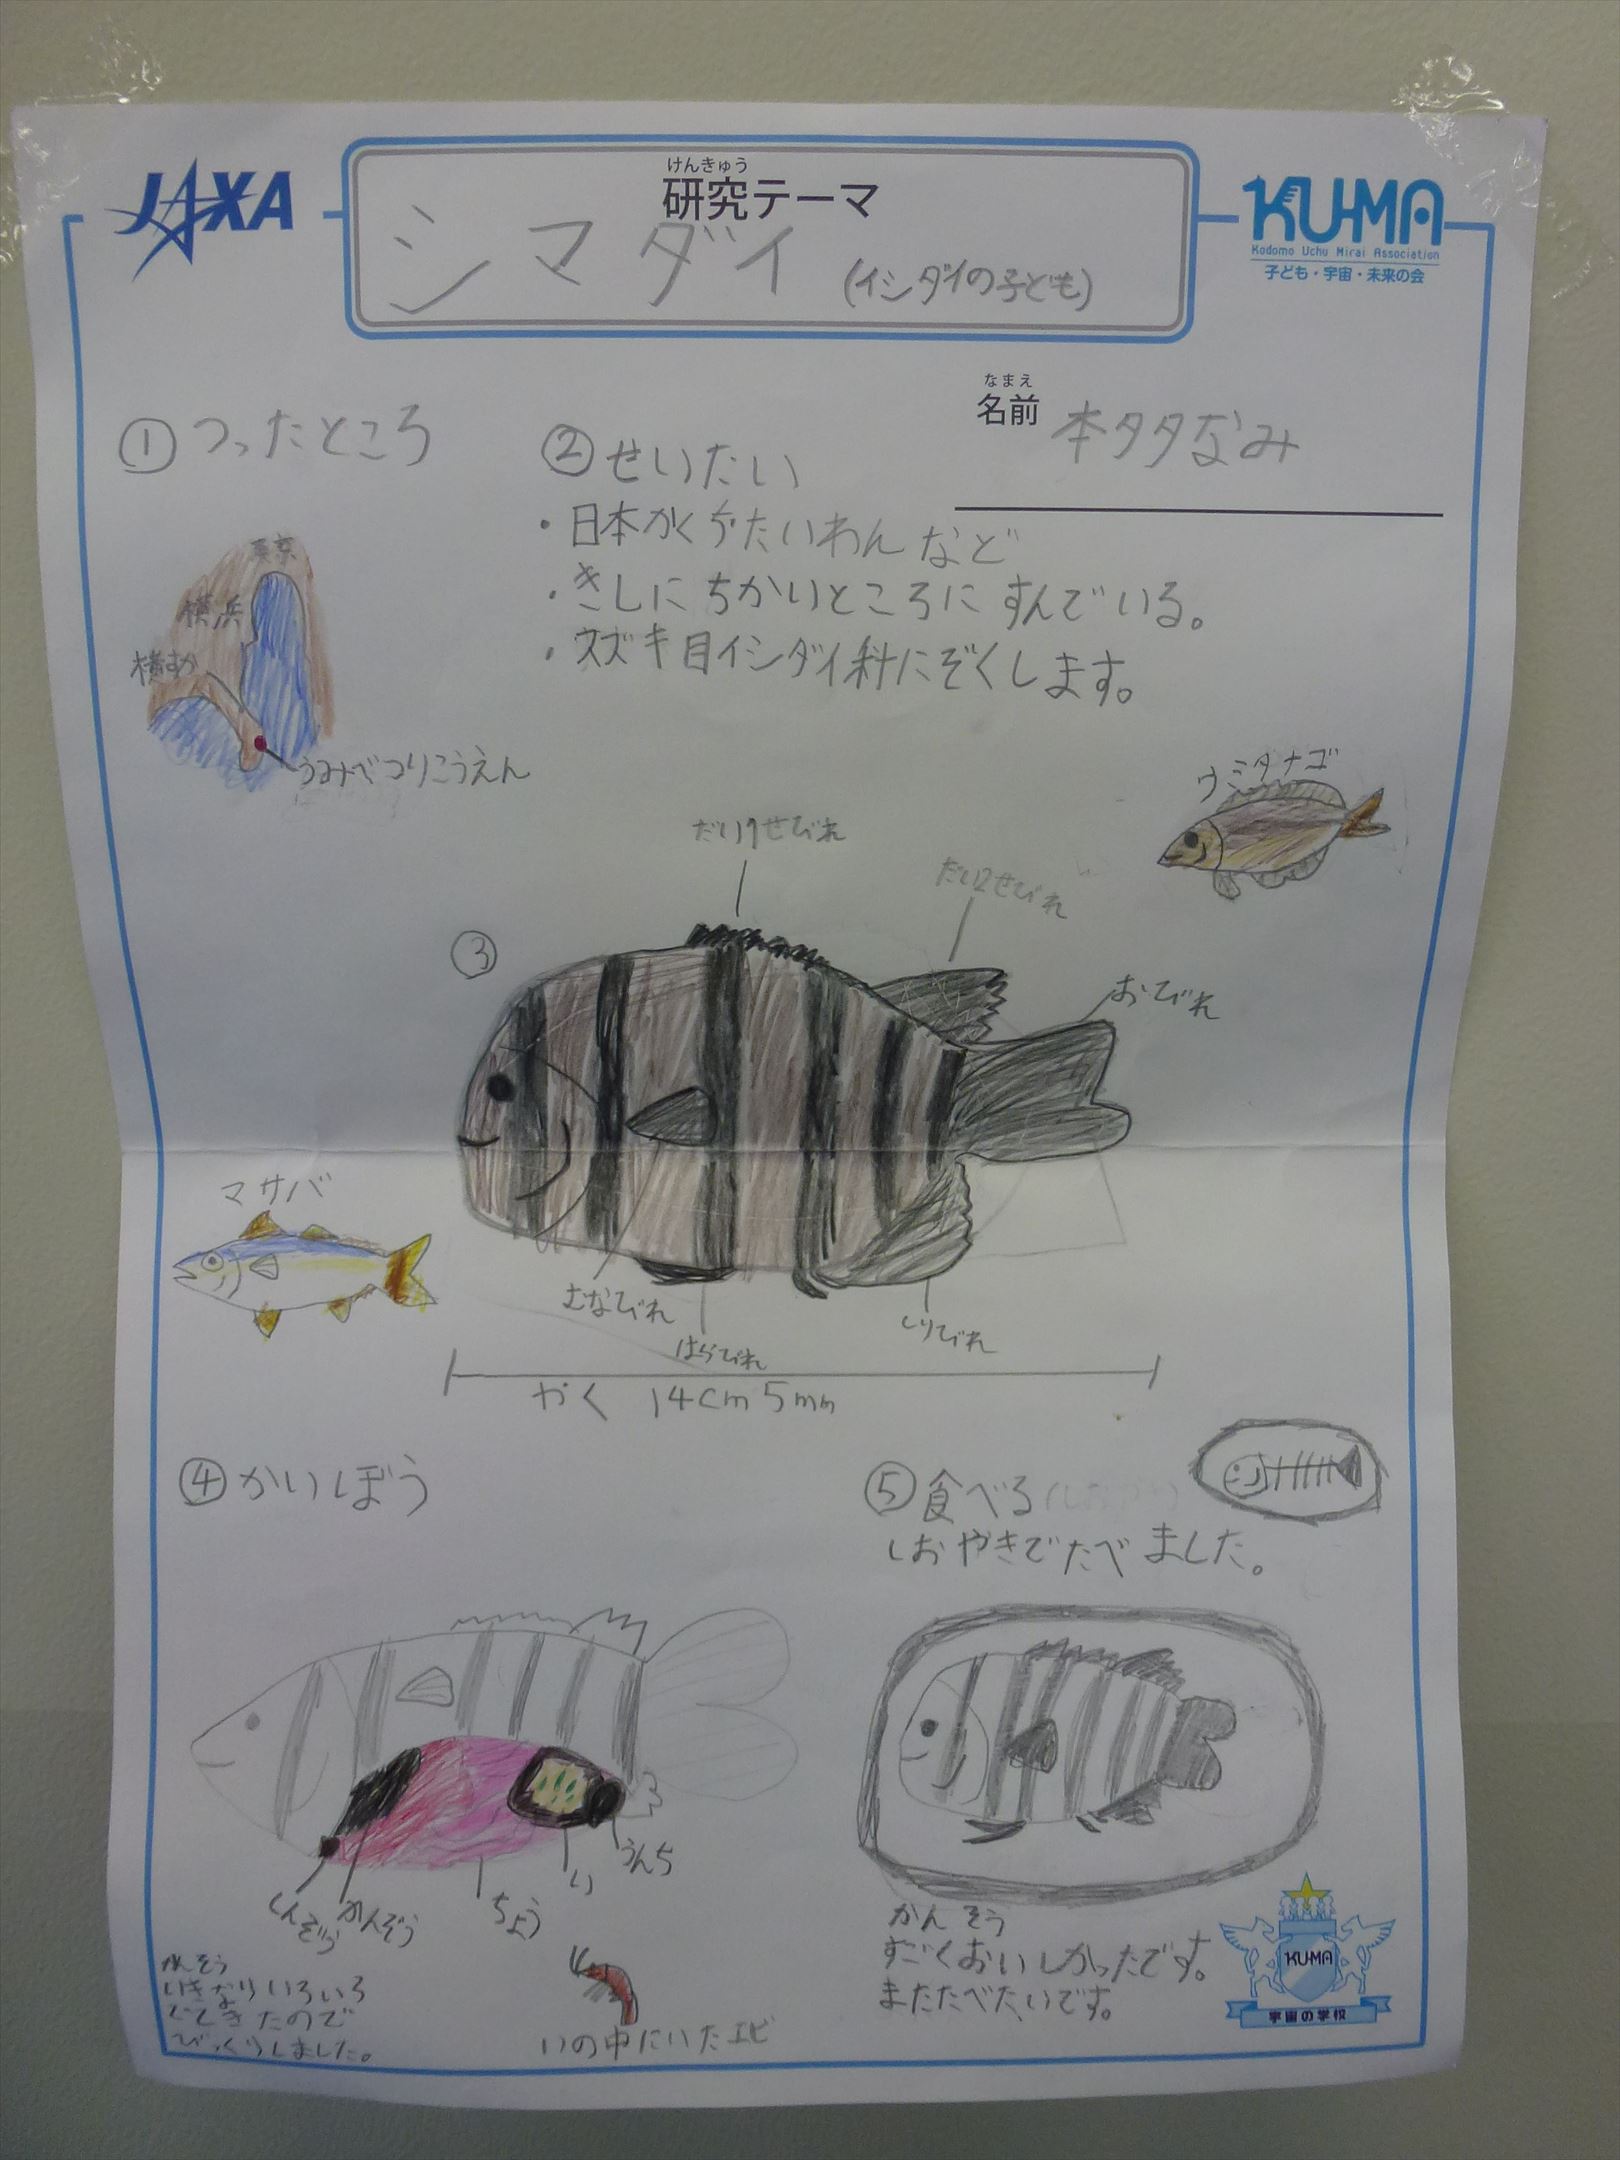 JAXA
けんきゅう
研究テーマ
シマダイ (イシダイの子ども)
KUMA
Kodomo Uchu Mirai Association
子ども・宇宙・未来の会
なまえ
名前 本タタなみ
① つったところ
東京
横浜
横すか
うみべつりこうえん
② せいたい
・日本かくち、たいわんなど
・きしにちかいところにすんでいる。
・スズキ目イシダイ科にぞくします。
ウミタナゴ
③
だい1せびれ
だい2せびれ
おびれ
むなびれ
はらびれ
しりびれ
やく 14cm5mm
マサバ
④ かいぼう
しんぞう
かんぞう
ちょう
い
うんち
かんそう
いきなりいろいろ
でてきたので
びっくりしました。
いの中にいたエビ
⑤ 食べる
しおやきでたべました。
かんそう
すごくおいしかったです。
またたべたいです。
KU-MA
宇宙の学校